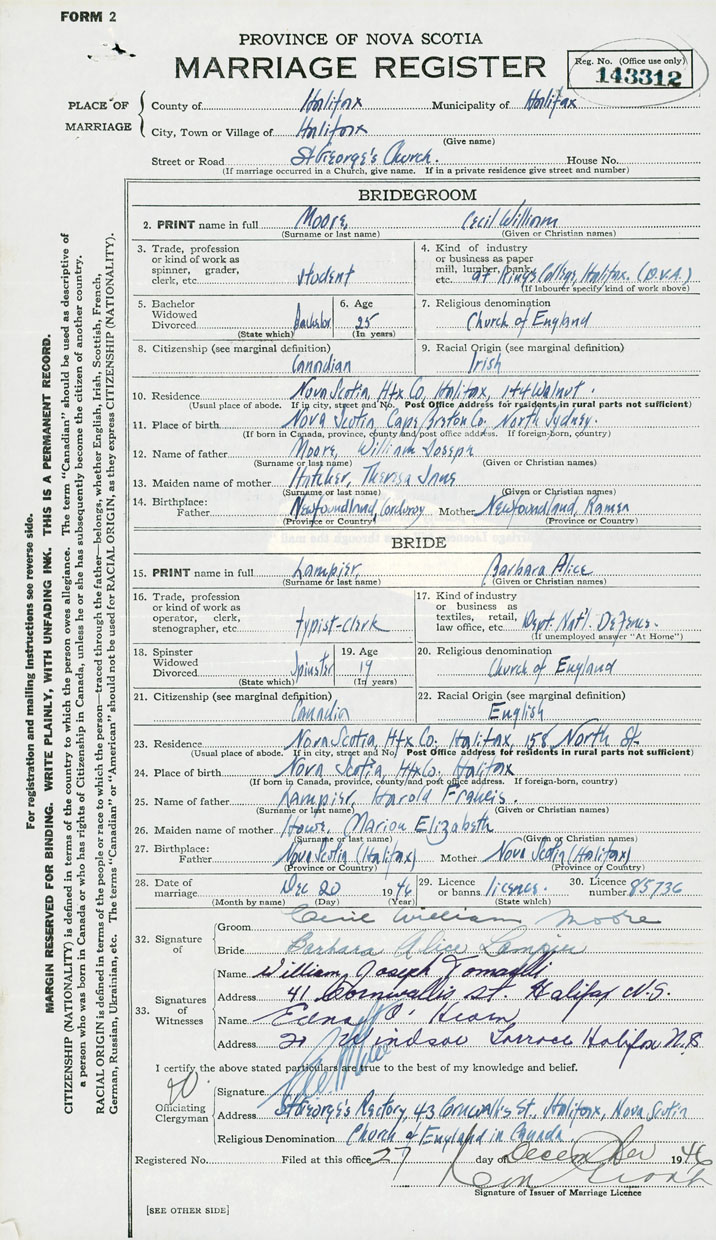 FORM 2
PROVINCE OF NOVA SCOTIA
MARRIAGE REGISTER
Reg. No. (Office use only)
143312
PLACE OF MARRIAGE
County of Halifax Municipality of Halifax
City, Town or Village of Halifax
(Give name)
Street or Road St George's Church. House No.
(If marriage occurred in a Church, give name. If in a private residence give street and number)
BRIDEGROOM
2. PRINT name in full Moore, Cecil William
(Surname or last name) (Given or Christian names)
3. Trade, profession or kind of work as spinner, grader, clerk, etc. student
4. Kind of industry or business as paper mill, lumber, bank, etc. at Kings College, Halifax. (D.V.A.)
(If labourer specify kind of work above)
5. Bachelor Widowed Divorced Bachelor
(State which)
6. Age 25
(In years)
7. Religious denomination
Church of England
8. Citizenship (see marginal definition)
Canadian
9. Racial Origin (see marginal definition)
Irish
10. Residence Nova Scotia, Hfx Co, Halifax, 144 Walnut.
(Usual place of abode. If in city, street and No. Post Office address for residents in rural parts not sufficient)
11. Place of birth Nova Scotia, Cape Breton Co, North Sydney.
(If born in Canada, province, county and post office address. If foreign-born, country)
12. Name of father Moore, William Joseph
(Surname or last name) (Given or Christian names)
13. Maiden name of mother Hatcher, Theresa Jane
(Surname or last name) (Given or Christian names)
14. Birthplace: Father Newfoundland, Cordroy Mother Newfoundland, Ramea
(Province or Country) (Province or Country)
BRIDE
15. PRINT name in full Lampier, Barbara Alice
(Surname or last name) (Given or Christian names)
16. Trade, profession or kind of work as operator, clerk, stenographer, etc. typist-clerk
17. Kind of industry or business as textiles, retail, law office, etc. Dept. Nat'l. Defence.
(If unemployed answer "At Home")
18. Spinster Widowed Divorced Spinster
(State which)
19. Age 19
(In years)
20. Religious denomination
Church of England
21. Citizenship (see marginal definition)
22. Racial Origin (see marginal definition)
English
23. Residence Nova Scotia, Hfx Co. Halifax, 158 North St.
(Usual place of abode. If in city, street and No. Post Office address for residents in rural parts not sufficient)
24. Place of birth Nova Scotia, Hfx Co. Halifax
(If born in Canada, province, county and post office address. If foreign-born, country)
25. Name of father Lampier, Harold Francis.
(Surname or last name) (Given or Christian names)
26. Maiden name of mother Howe, Marion Elizabeth
(Surname or last name) (Given or Christian names)
27. Birthplace: Father Nova Scotia (Halifax) Mother Nova Scotia (Halifax)
(Province or Country) (Province or Country)
28. Date of marriage Dec 20 1946
(Month by name) (Day) (Year)
29. Licence or banns licence.
(State which)
30. Licence number 85736
32. Signature of
Groom Cecil William Moore
Bride Barbara Alice Lampier
33. Signatures of Witnesses
Name William Joseph
Address 41 Cornwallis St. Halifax N.S.
Name Edna O'
Address Windsor Terrace Halifax N.S
I certify the above stated particulars are true to the best of my knowledge and belief.
Officiating Clergyman
Signature
Address St George's Rectory, 43 Cornwallis St. Halifax, Nova Scotia
Religious Denomination Church of England in Canada.
Registered No. Filed at this office 27 day of December 1946
Signature of Issuer of Marriage Licence
[SEE OTHER SIDE]
For registration and mailing instructions see reverse side.
MARGIN RESERVED FOR BINDING. WRITE PLAINLY, WITH UNFADING INK. THIS IS A PERMANENT RECORD.
CITIZENSHIP (NATIONALITY) is defined in terms of the country to which the person owes allegiance. The term "Canadian" should be used as descriptive of
a person who was born in Canada or who has rights of Citizenship in Canada, unless he or she has subsequently become the citizen of another country.
RACIAL ORIGIN is defined in terms of the people or race to which the person—traced through the father—belongs, whether English, Irish, Scottish, French,
German, Russian, Ukrainian, etc. The terms "Canadian" or "American" should not be used for RACIAL ORIGIN, as they express CITIZENSHIP (NATIONALITY).